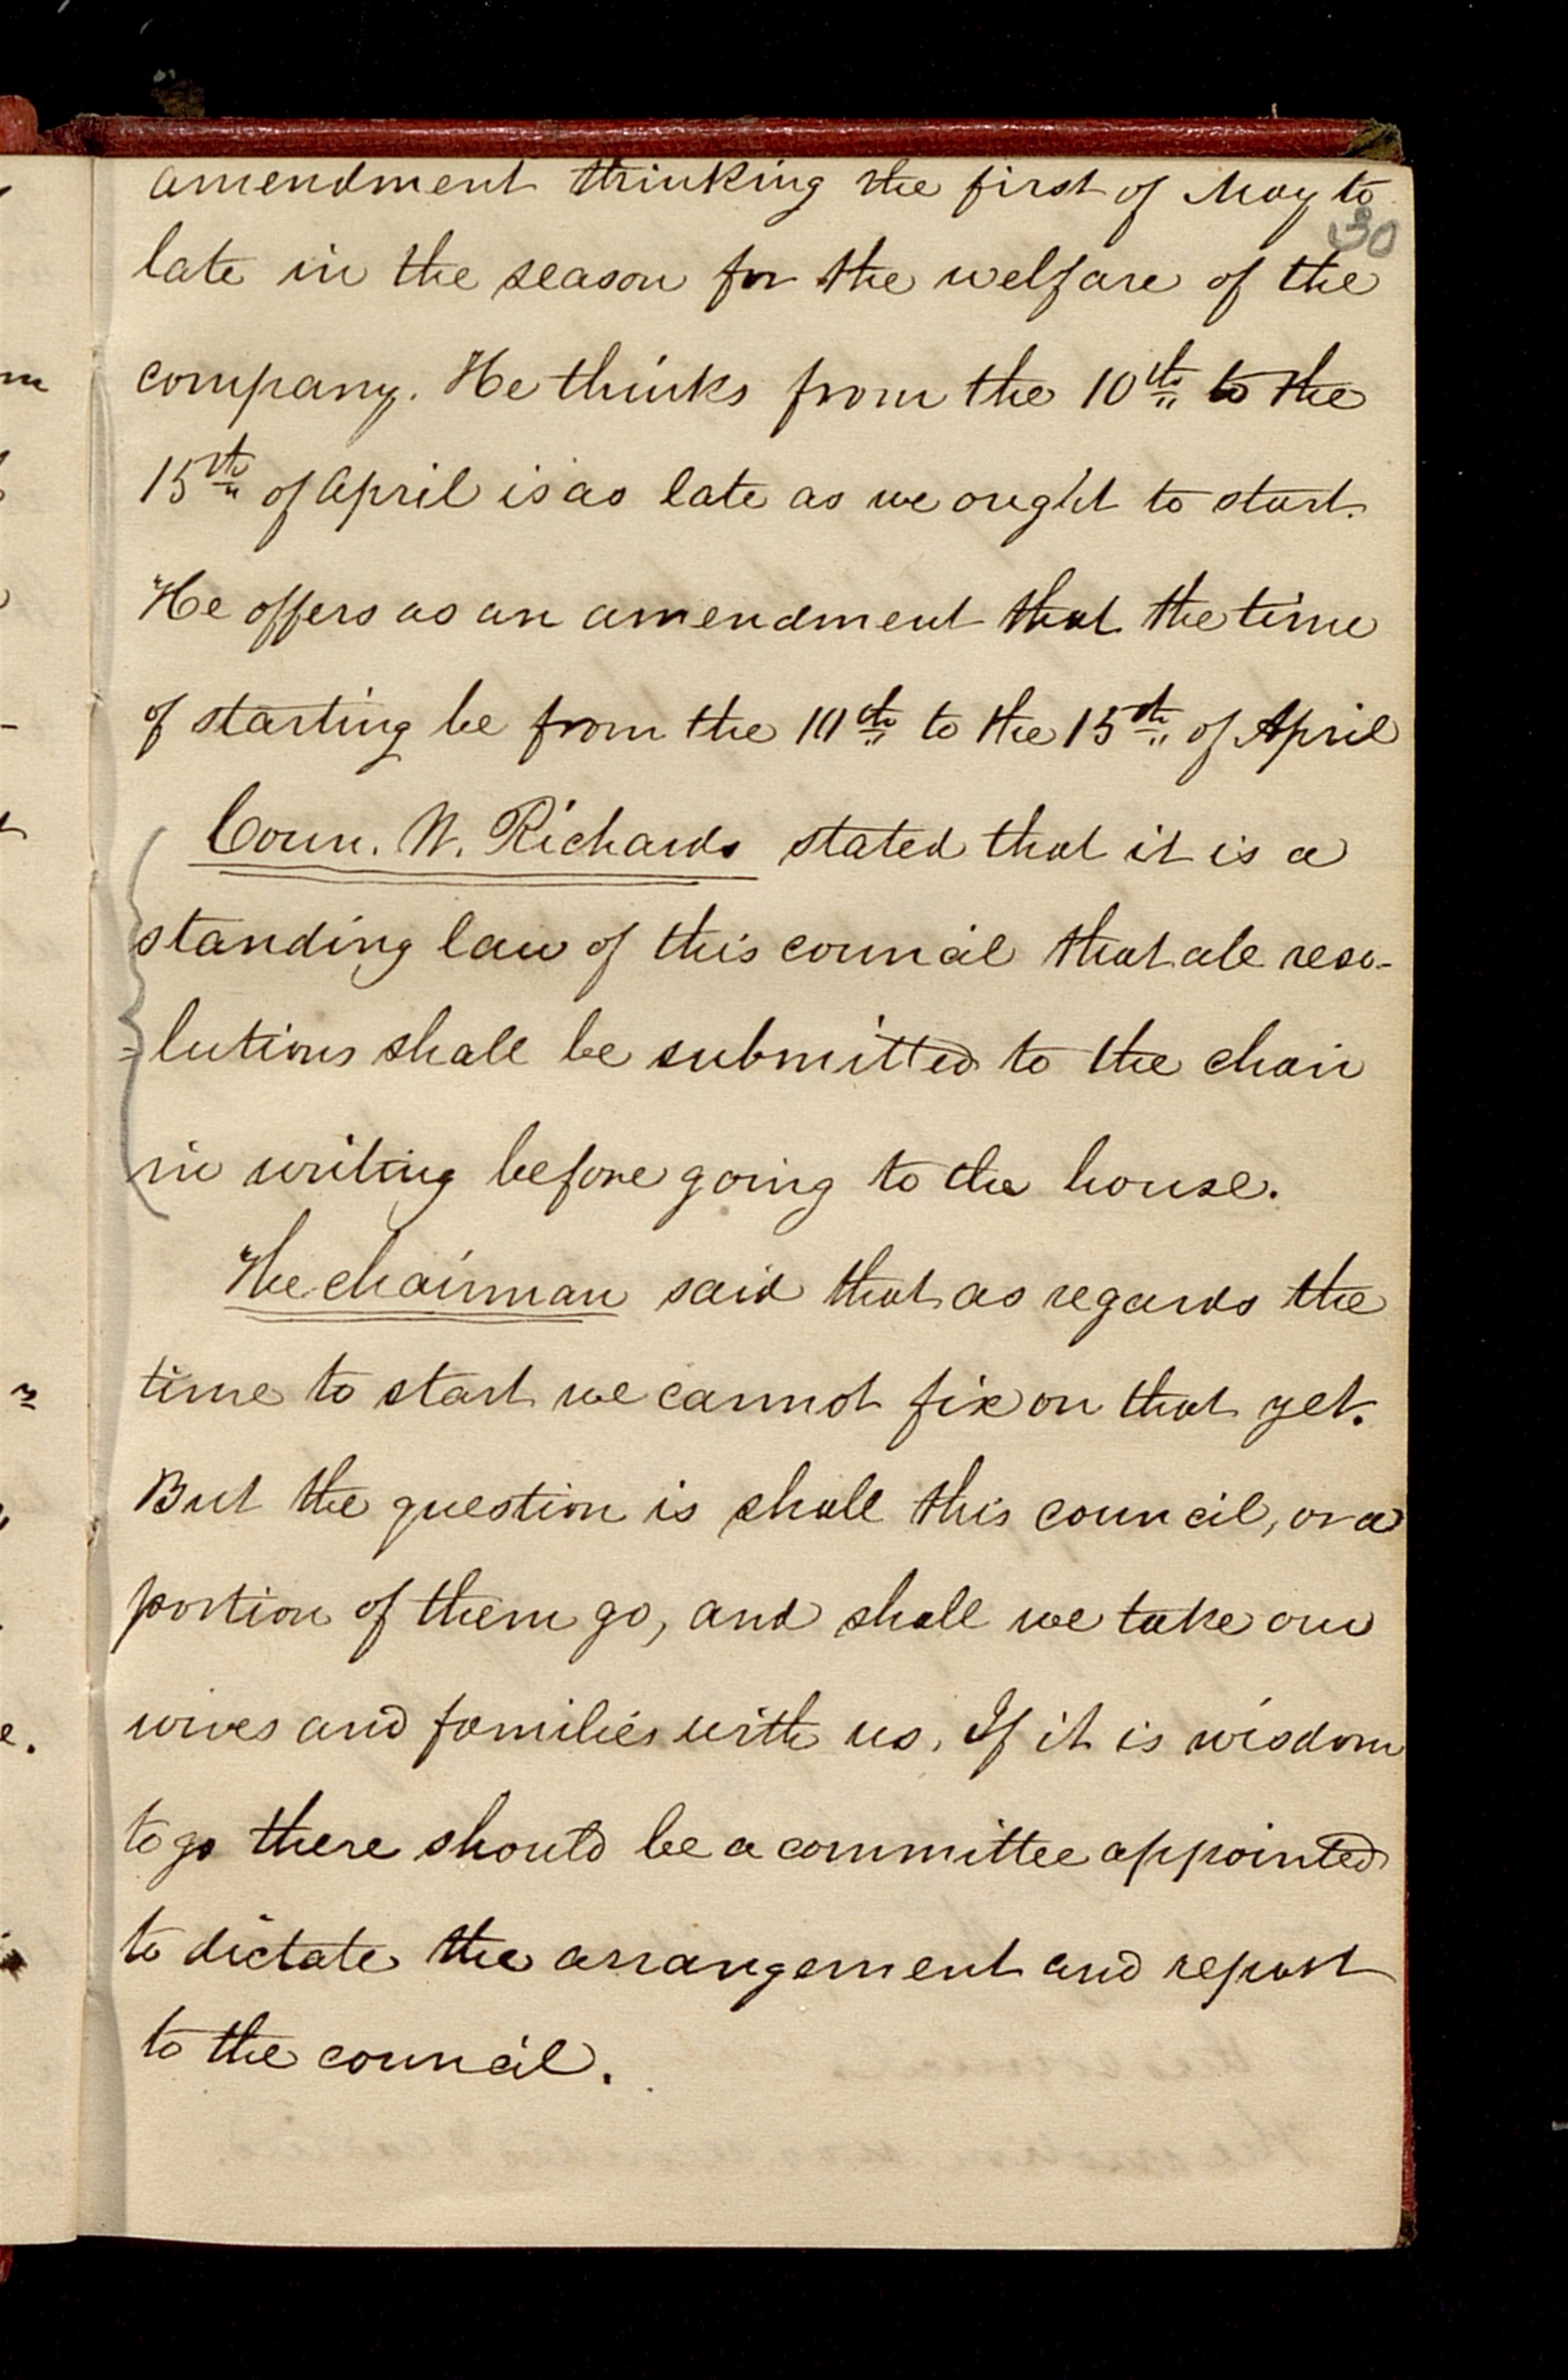 amendment thinking the first of May to
30
late in the season for the welfare of the
company. He thinks from the 10th to the
15th of April is as late as we ought to start.
He offers as an amendment that the time
of starting be from the 10th to the 15th of April
Coun. W. Richards stated that it is a
standing law of this council that all reso-
=lutions shall be submitted to the chair
in writing before going to the house.
The chairman said that as regards the
time to start we cannot fix on that yet.
But the question is shall this council, or a
portion of them go, and shall we take our
wives and families with us. If it is wisdom
to go there should be a committee appointed
to dictate the arrangement and report
to the council.